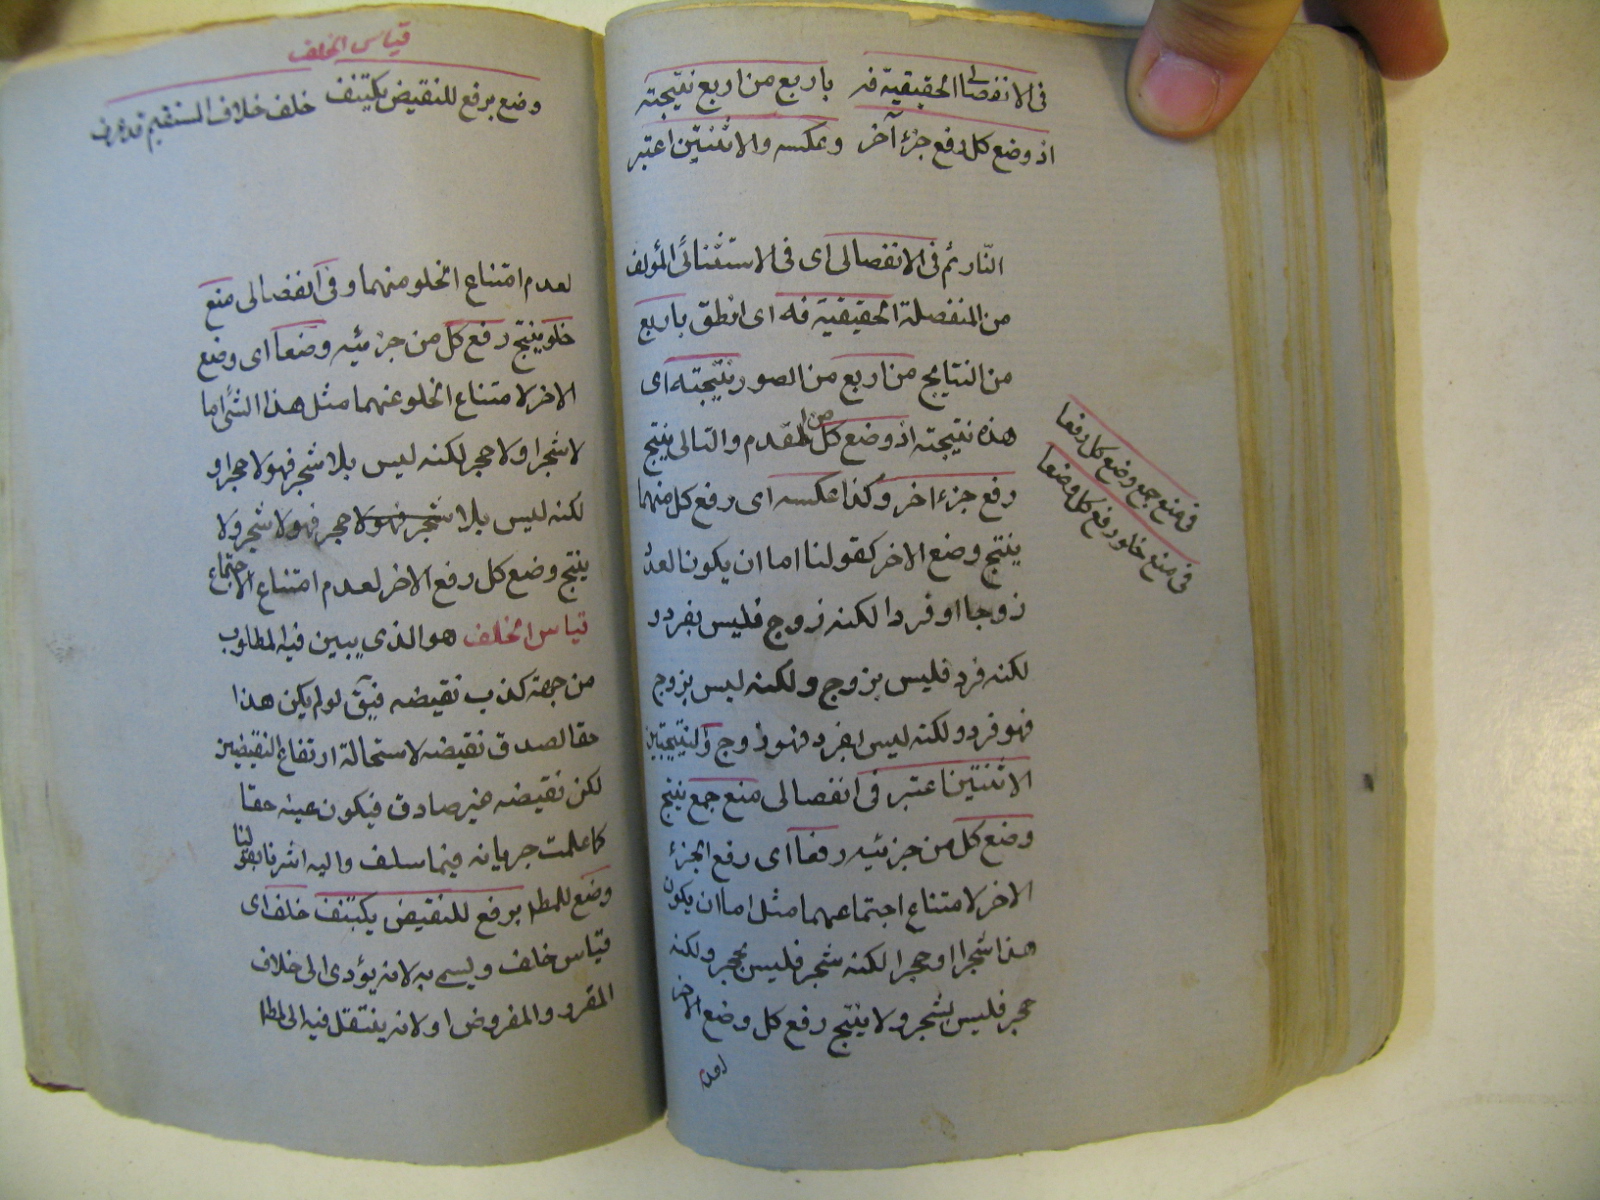 فى الانفصالى الحقيقية فه باربع من اربع نتيجته
اذ وضع كل رفع جزء آخر وعكسه والاثنتين اعتبر
فى الانفصالى اى فى الاستثنائى المؤلف
من المنفصلة الحقيقية فه اى انطق باربع
من النتايج من اربع من الصور نتيجته اى
هذه نتيجته اذ وضع كل من المقدم والتالى ينتج
رفع جزء اخر وكذا عكسه اى رفع كل منهما
ينتج وضع الاخر كقولنا اما ان يكون العدد
زوجا او فردا لكنه زوج فليس بفرد و
لكنه فرد فليس بزوج ولكنه ليس بزوج
فهو فرد ولكنه ليس بفرد فهو زوج والنتيجتين
الاثنتين اعتبر فى انفصالى منع جمع ينتج
وضع كل من جزئيه رفعا اى رفع الجزء
الاخر لامتناع اجتماعهما مثل اما ان يكون
هذا شجرا او حجرا لكنه شجر فليس بحجر ولكنه
حجر فليس بشجر ولا ينتج رفع كل وضع الاخر
لعدم
فى منع جمع وضع كل رفعا
فى منع خلو رفع كل وضعا
قياس الخلف
وضع برفع للنقيض يكتنف خلف خلاف المستقيم قد عرف
لعدم امتناع الخلو منهما وفى انفصالى منع
خلو ينتج رفع كل من جزئيه وضعا اى وضع
الاخر لامتناع الخلو عنهما مثل هذا الشئ اما
لا شجرا ولا حجر لكنه ليس بلا شجر فهو لا حجر او
لكنه ليس بلا شجر فهو لا حجر فهو لا شجر ولا
ينتج وضع كل رفع الاخر لعدم امتناع الاجتماع
قياس الخلف هو الذى يبين فيه المطلوب
من جهة كذب نقيضه فيق لو لم يكن هذا
حقا لصدق نقيضه لاستحالة ارتفاع النقيضين
لكن نقيضه غير صادق فيكون عينه حقا
كما علمت جريانه فيما سلف واليه اشرنا بقولنا
وضع للمط برفع للنقيض يكتنف خلف اى
قياس خلف ويسمى به لانه يؤدى الى خلاف
المقرر والمفروض او لانه ينتقل فيه الى المط